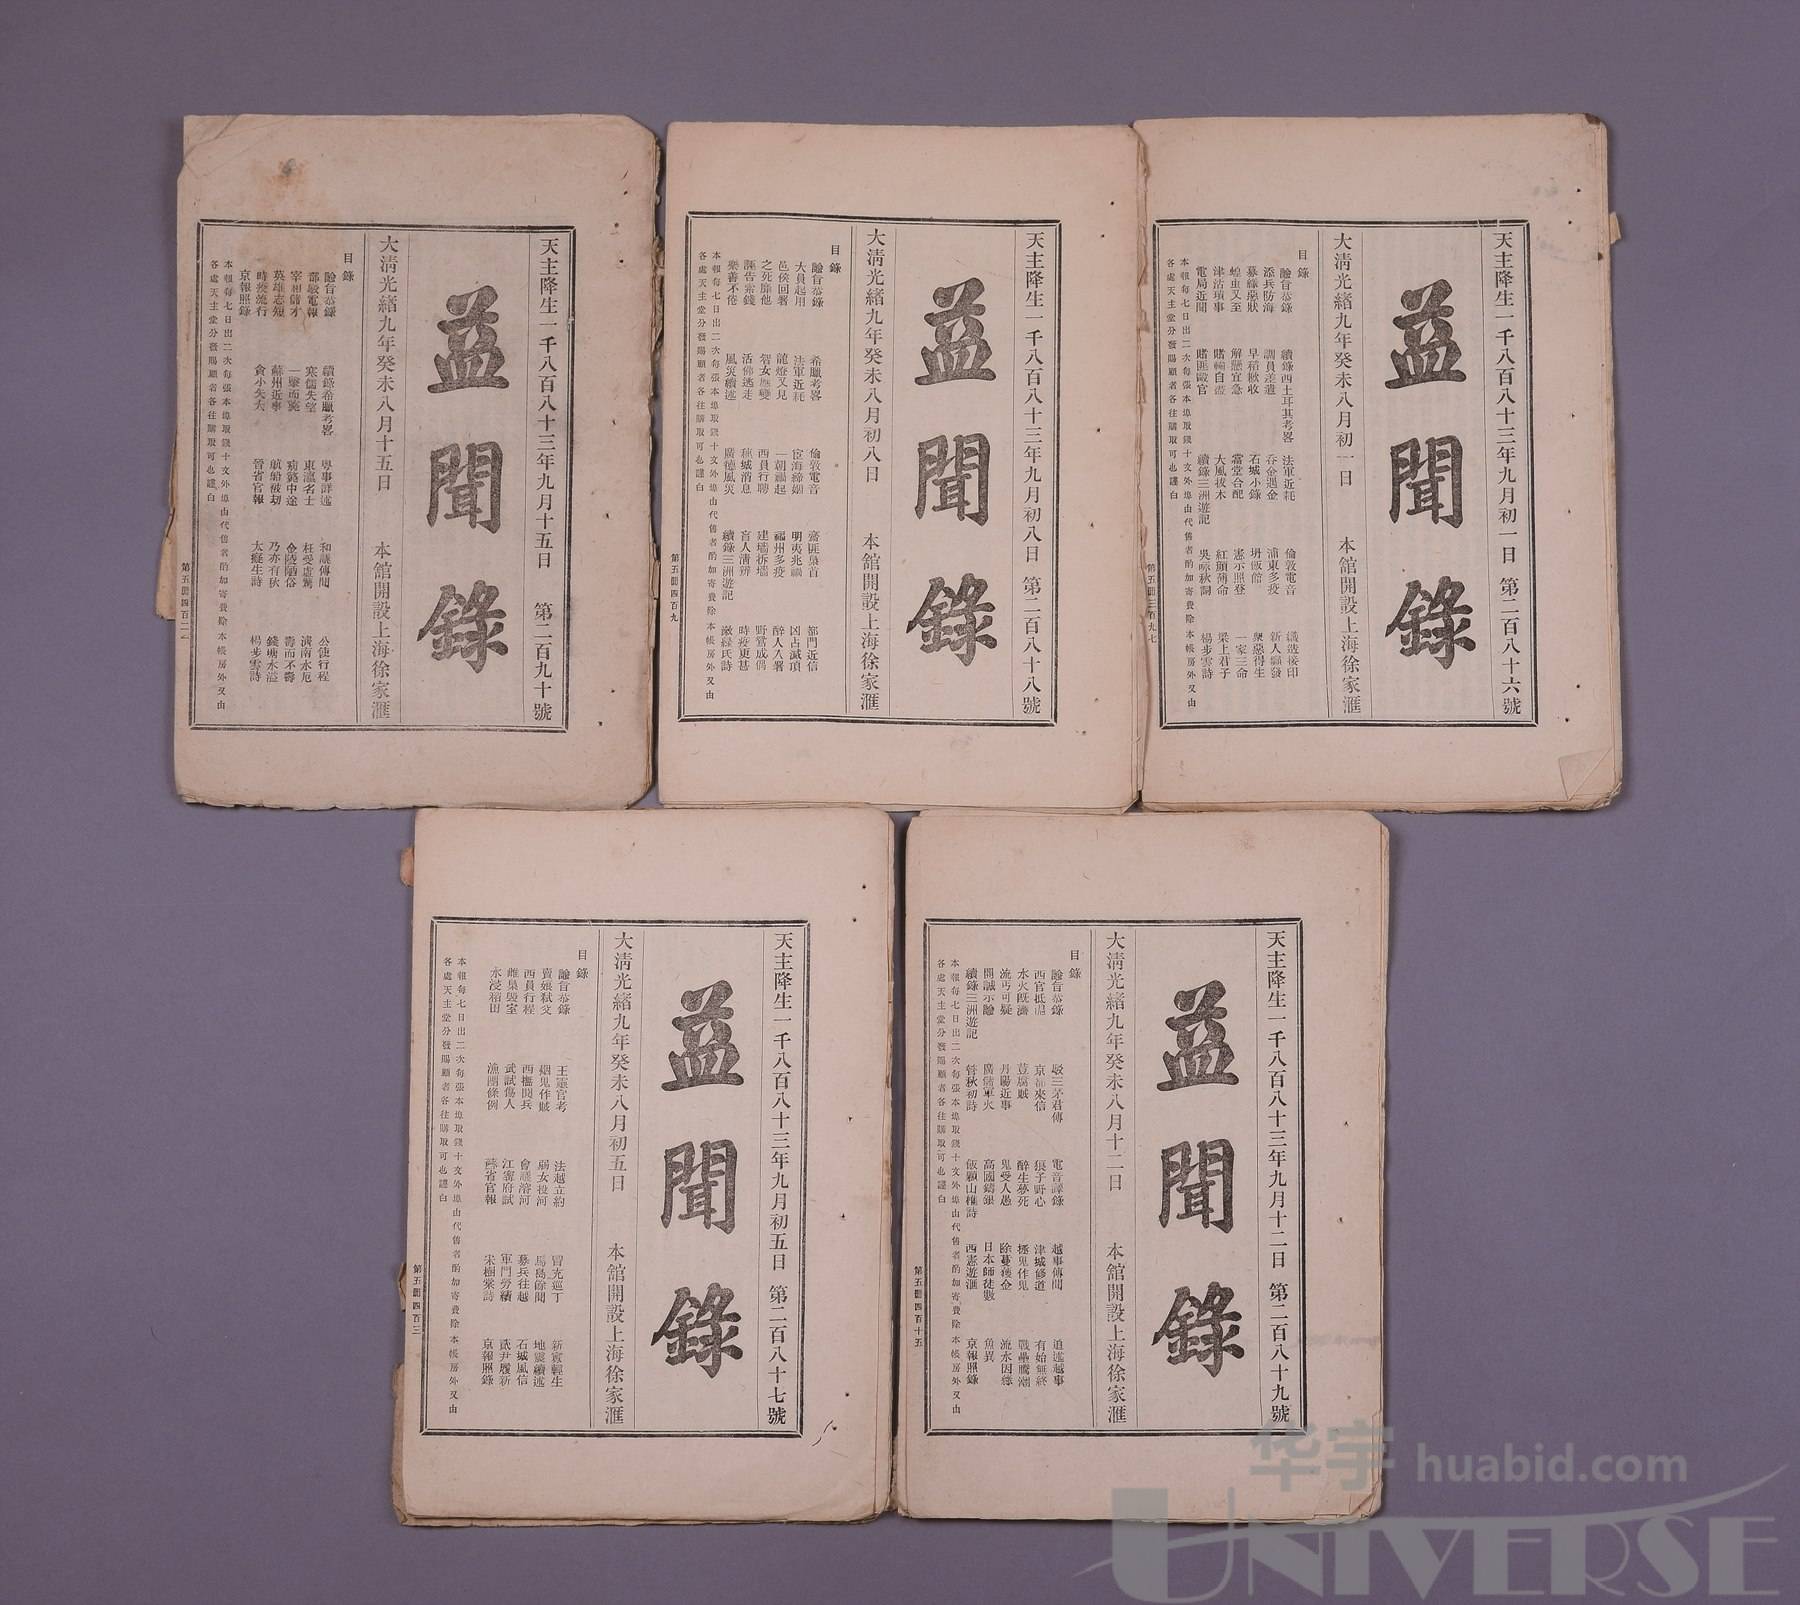 天主降生一千八百八十三年九月十五日 第二百九十號
益聞錄
大清光緒九年癸未八月十五日 本館開設上海徐家滙
目錄
諭旨恭錄 續錄希臘考畧 粤事詳述 和議傳聞 公使行程
部駁電報 寒儒失望 東瀛名士 枉受虛驚 濟南水厄
宰相儲才 一擊而斃 壽而不壽
英雄志短 蘇州近事 航船被刧 乃亦有秋 錢塘水溢
時疫流行 貪小失大 晉省官報 太癡生詩 楊步雲詩
京報照錄
本報每七日出二次每張本埠取錢十文外埠由代售者酌加寄費除本帳房外又由
各處天主堂分發賜顧者各往購取可也謹白
天主降生一千八百八十三年九月初八日 第二百八十八號
益聞錄
大清光緒九年癸未八月初八日 本館開設上海徐家滙
目錄
諭旨恭錄 希臘考畧 倫敦電音 齋匪梟首 都門近信
大員起用 法軍近耗 宦海締姻 明夷兆禍 凶占滅項
邑侯回署 龍燈又見 一朝禍起 福州多疫 醉人入署
之死靡他 智女應變 西員行聘 建壩拆壩 野鴛成偶
誣告索錢 活佛逃走 穗城消息 盲人清辨 時疫更甚
樂善不倦 風災續述 廣德風災 續錄三洲遊記
本報每七日出二次每張本埠取錢十文外埠由代售者酌加寄費除本帳房外又由
各處天主堂分發賜顧者各往購取可也謹白
第五冊四百九
天主降生一千八百八十三年九月初一日 第二百八十六號
益聞錄
大清光緒九年癸未八月初一日 本館開設上海徐家滙
目錄
諭旨恭錄 續錄西土耳其考畧 法軍近耗 倫敦電音 織造接印
添兵防海 調員差遣 吞金遇金 浦東多疫 新人顯發
夤緣惡狀 早稻歉收 石城小錄 坍飯館 眾惡得生
蝗虫又至 解懸宜急 當堂合配 憲示照登 一家三命
津沽瑣事 賭輸自盡 大風拔木 紅顏薄命 梁上君子
電局近聞 賭匪毆官 續錄三洲遊記 吳詠秋詞 楊步雲詩
本報每七日出二次每張本埠取錢十文外埠由代售者酌加寄費除本帳房外又由
各處天主堂分發賜顧者各往購取可也謹白
第五冊三百九七
天主降生一千八百八十三年九月初五日 第二百八十七號
益聞錄
大清光緒九年癸未八月初五日 本館開設上海徐家滙
目錄
諭旨恭錄 王靈官考 法越立約 冒充巡丁 輕生
賣娘弒父 烟鬼作賊 弱女投河 馬島餘聞 地震續述
西員行程 西撫閱兵 會議溶河 募兵往越 石城風信
雌梟毀室 武試傷人 江寧府試 軍門勞績 貳尹履新
水浸稻田 漁團條例 蘇省官報 宋樹棠詩 京報照錄
本報每七日出二次每張本埠取錢十文外埠由代售者酌加寄費除本帳房外又由
各處天主堂分發賜顧者各往購取可也謹白
第五冊四百三
天主降生一千八百八十三年九月十二日 第二百八十九號
益聞錄
大清光緒九年癸未八月十二日 本館開設上海徐家滙
目錄
諭旨恭錄 駁三茅君傳 電音譯錄 越事傳聞 追述越事
西官抵滬 京師來信 狼子野心 津城修道 有始無終
水火既濟 荳腐賊 醉生夢死 極鬼作鬼 戰壘騰潮
流丐可疑 丹陽近事 鬼受人愚 除蔓獲金 流水因緣
開誠示諭 廣儲軍火 高國鑄銀 日本師徒數 魚異
續錄三洲遊記 管秋初詩 飯顆山樵詩 西憲遊滙 京報照錄
本報每七日出二次每張本埠取錢十文外埠由代售者酌加寄費除本帳房外又由
各處天主堂分發賜顧者各往購取可也謹白
第五冊四百十五
华宇 huabid.com
UNIVERSE